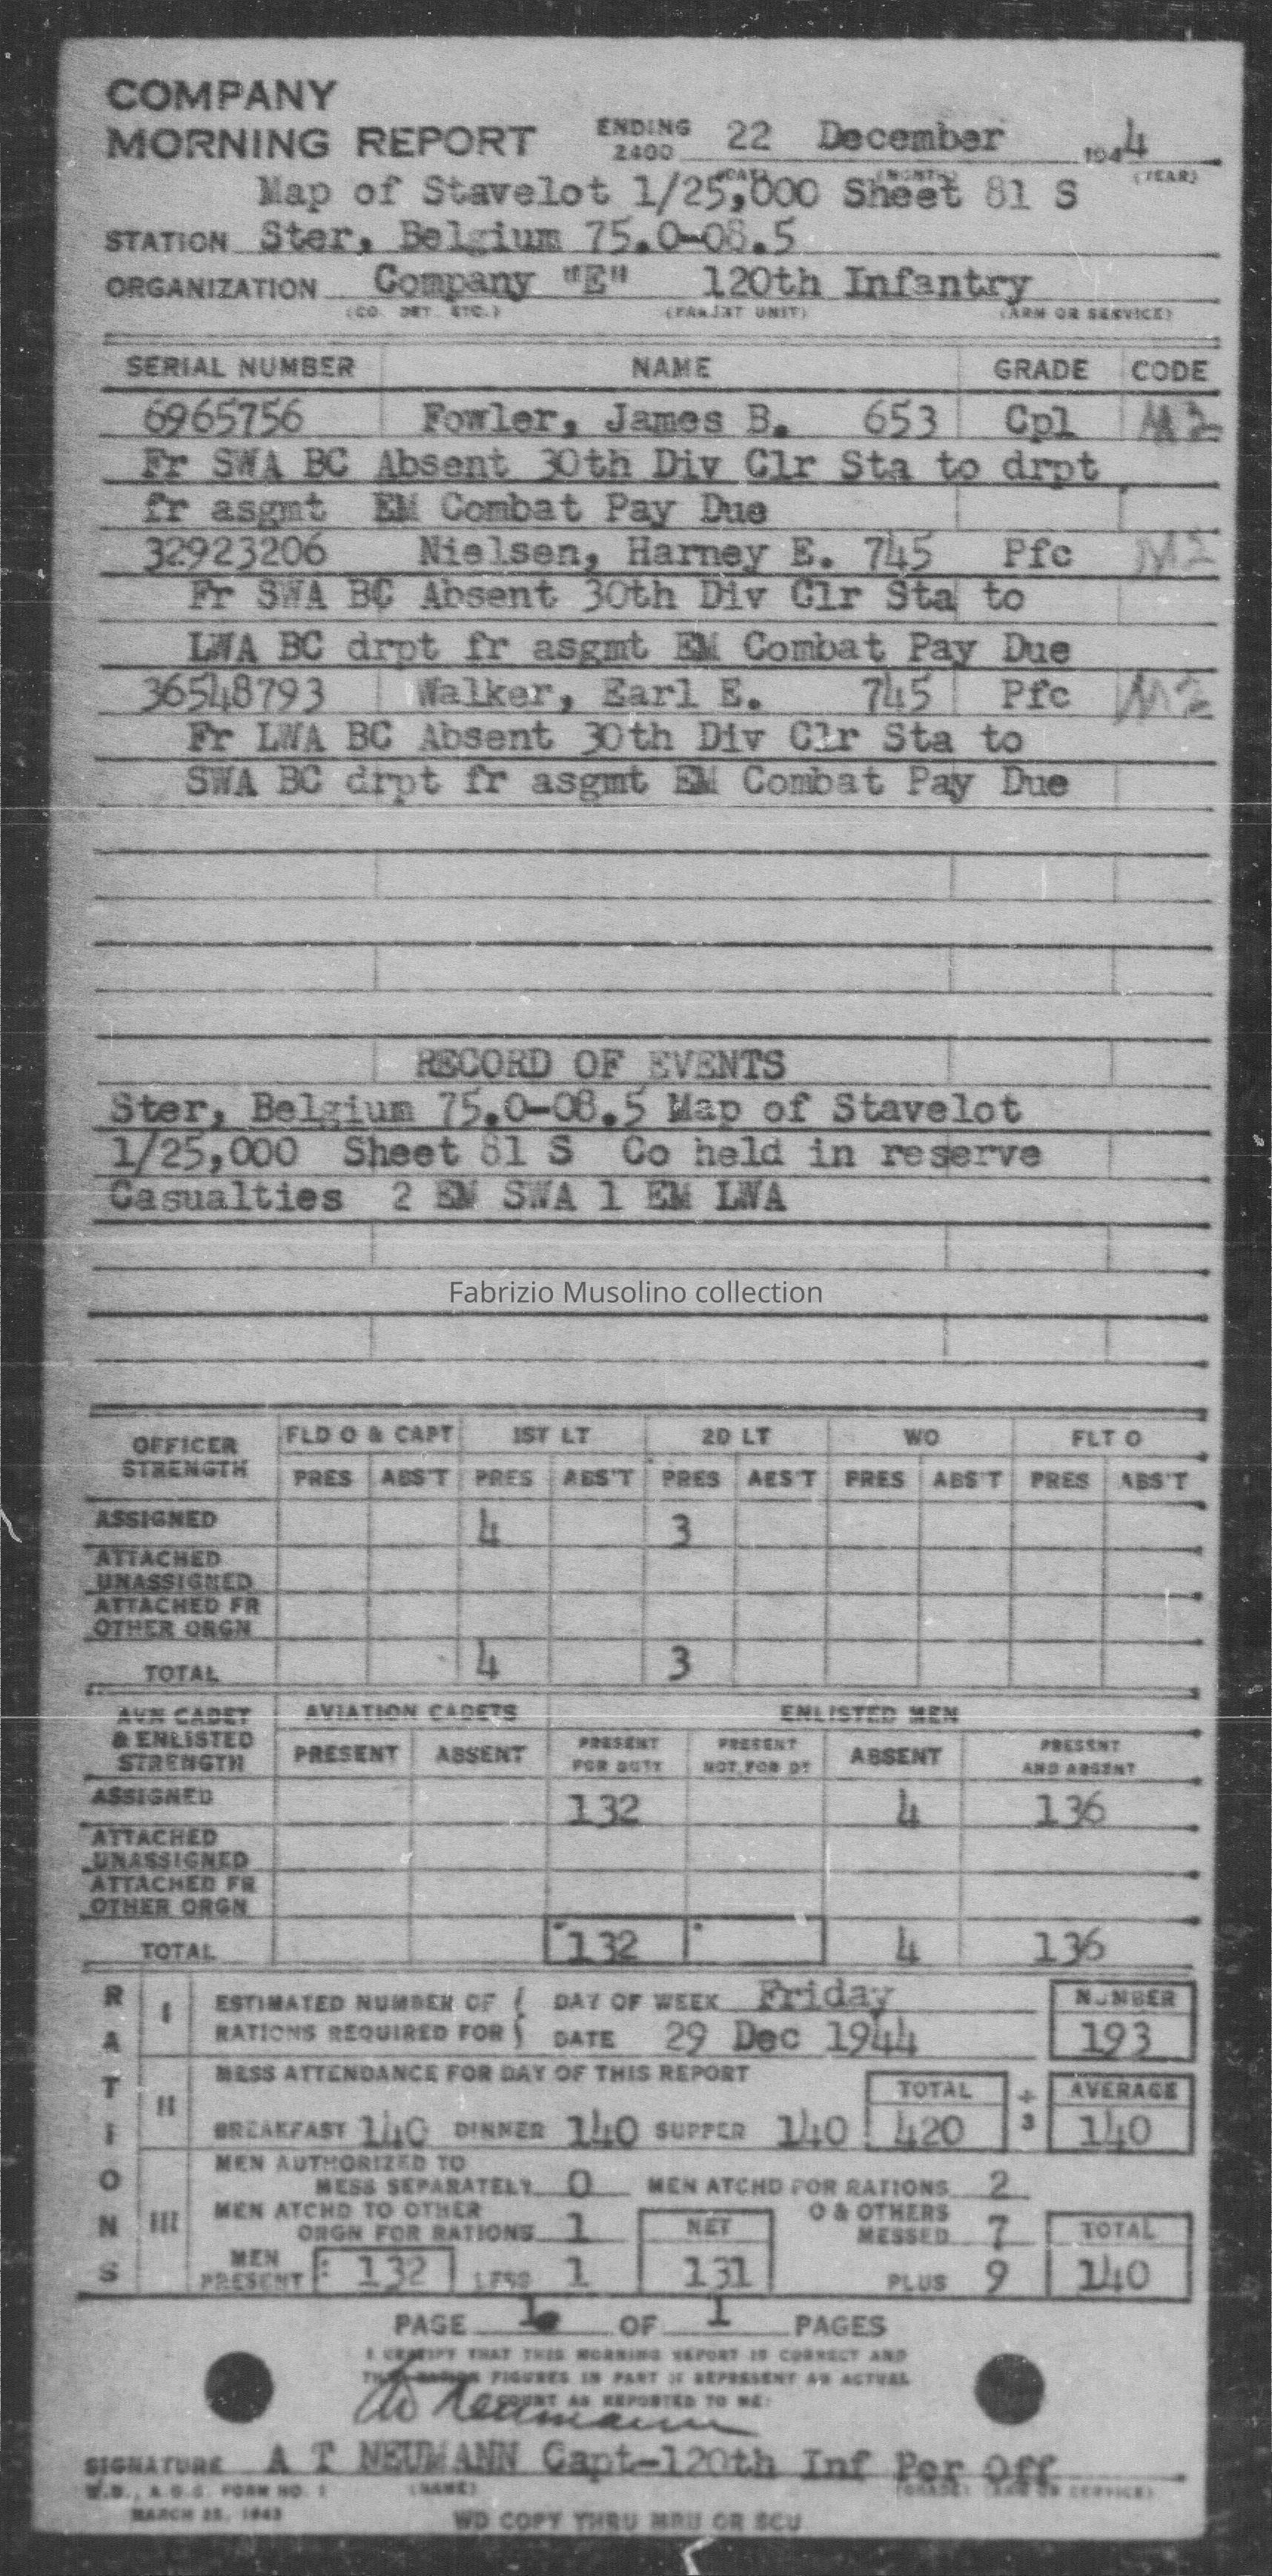 COMPANY
MORNING REPORT ENDING 2400 22 December 1944
(DAY) (MONTH) (YEAR)
Map of Stavelot 1/25,000 Sheet 81 S
STATION Ster, Belgium 75.0-08.5
ORGANIZATION Company "E" 120th Infantry
(CO. DET. ETC.) (PARENT UNIT) (ARM OR SERVICE)
SERIAL NUMBER NAME GRADE CODE
6965756 Fowler, James B. 653 Cpl M2
Fr SWA BC Absent 30th Div Clr Sta to drpt
fr asgmt EM Combat Pay Due
32923206 Nielsen, Harney E. 745 Pfc M2
Fr SWA BC Absent 30th Div Clr Sta to
LWA BC drpt fr asgmt EM Combat Pay Due
36548793 Walker, Earl E. 745 Pfc M2
Fr LWA BC Absent 30th Div Clr Sta to
SWA BC drpt fr asgmt EM Combat Pay Due
RECORD OF EVENTS
Ster, Belgium 75.0-08.5 Map of Stavelot
1/25,000 Sheet 81 S Co held in reserve
Casualties 2 EM SWA 1 EM LWA
Fabrizio Musolino collection
OFFICER STRENGTH FLD O & CAPT 1ST LT 2D LT WO FLT O
PRES ABS'T PRES ABS'T PRES ABS'T PRES ABS'T PRES ABS'T
ASSIGNED 4 3
ATTACHED UNASSIGNED
ATTACHED FR OTHER ORGN
TOTAL 4 3
AVN CADET & ENLISTED STRENGTH AVIATION CADETS ENLISTED MEN
PRESENT ABSENT PRESENT FOR DUTY PRESENT NOT FOR DY ABSENT PRESENT AND ABSENT
ASSIGNED 132 4 136
ATTACHED UNASSIGNED
ATTACHED FR OTHER ORGN
TOTAL 132 4 136
RATIONS
I ESTIMATED NUMBER OF DAY OF WEEK Friday NUMBER
RATIONS REQUIRED FOR DATE 29 Dec 1944 193
II MESS ATTENDANCE FOR DAY OF THIS REPORT TOTAL ÷ AVERAGE
BREAKFAST 140 DINNER 140 SUPPER 140 420 3 140
III MEN AUTHORIZED TO
MESS SEPARATELY 0 MEN ATCHD FOR RATIONS 2
MEN ATCHD TO OTHER O & OTHERS
ORGN FOR RATIONS 1 NET MESSED 7 TOTAL
MEN PRESENT 132 LESS 1 131 PLUS 9 140
PAGE 1 OF 1 PAGES
I CERTIFY THAT THIS MORNING REPORT IS CORRECT AND
THE RATION FIGURES IN PART II REPRESENT AN ACTUAL
COUNT AS REPORTED TO ME:
SIGNATURE A T NEUMANN Capt-120th Inf Per Off
W.D., A.G.O. FORM NO. 1 (NAME) (GRADE) (ARM OR SERVICE)
MARCH 25, 1943
WD COPY THRU MRU OR SCU